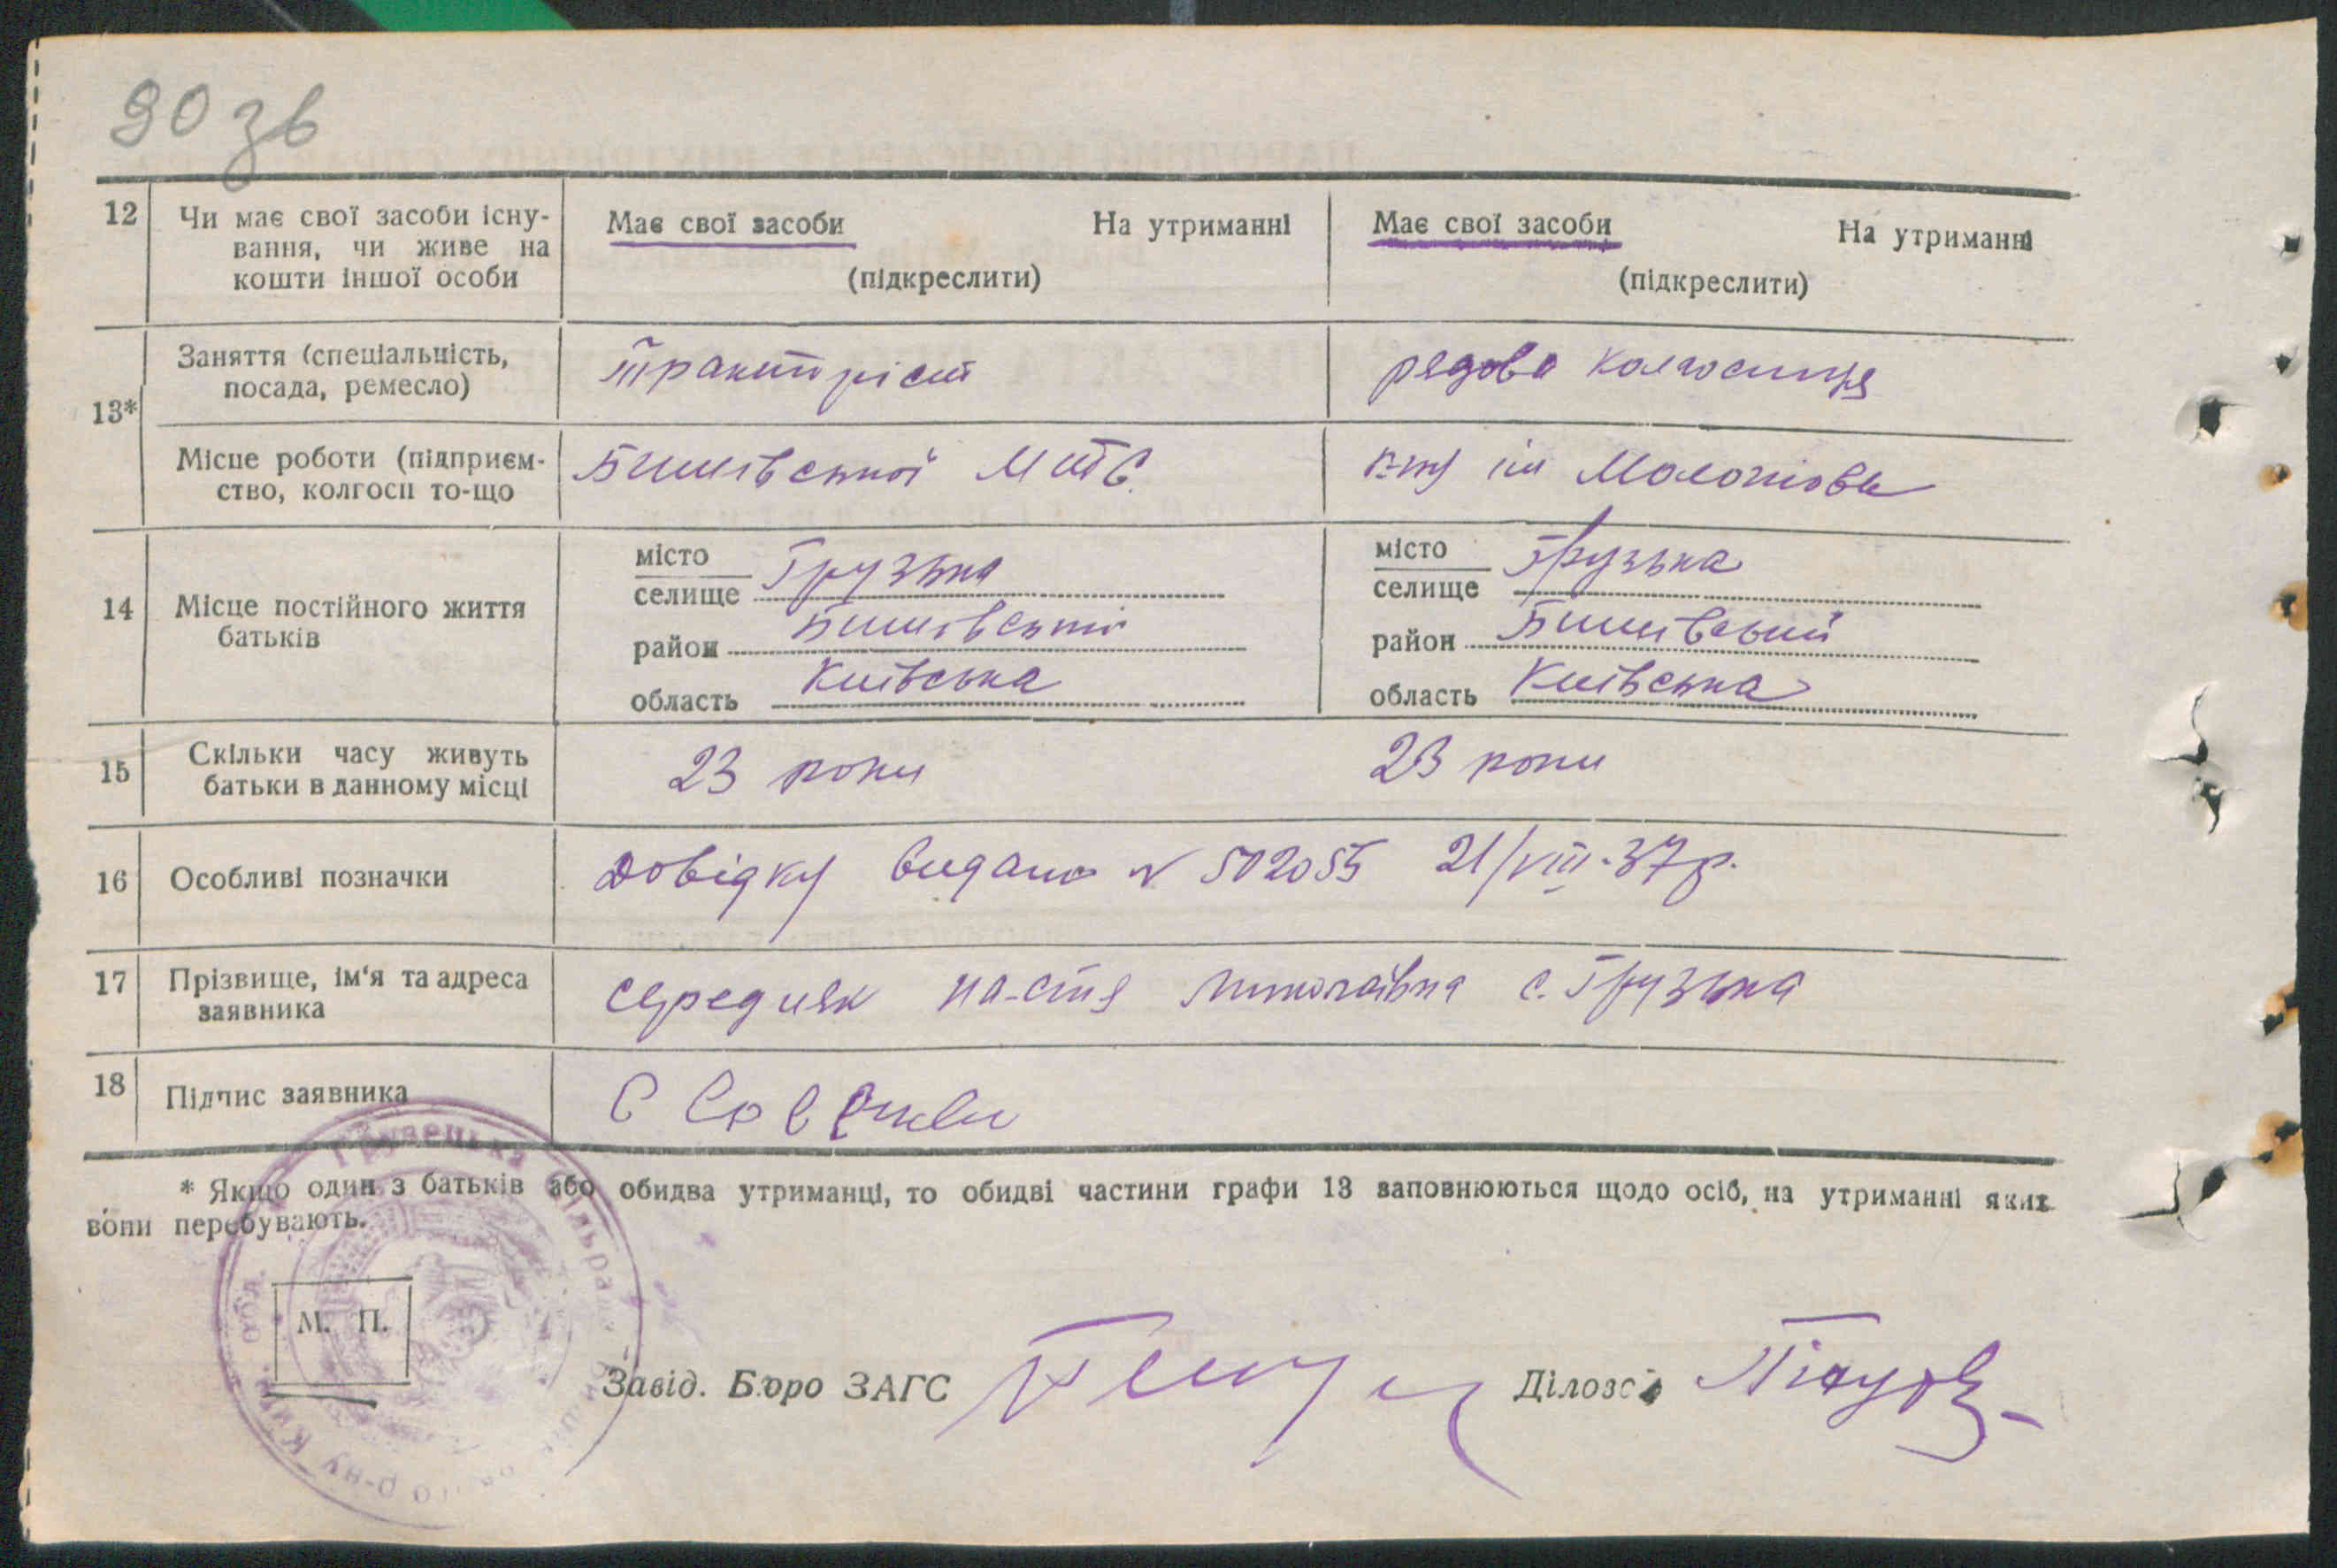 90 зв
12 Чи має свої засоби існу-
вання, чи живе на
кошти іншої особи
Має свої засоби На утриманні
(підкреслити)
Має свої засоби На утриманні
(підкреслити)
13*
Заняття (спеціальність,
посада, ремесло)
тракторіст
рядова колгоспниця
Місце роботи (підприєм-
ство, колгосп то-що
Бишівської МТС
к-пу ім Молотова
14 Місце постійного життя
батьків
місто
селище Грузька
район Бишівський
область Київська
місто
селище Грузька
район Бишівський
область Київська
15 Скільки часу живуть
батьки в данному місці
23 роки
23 роки
16 Особливі позначки
Довідку видано № 502055 21/VIII-37р.
17 Прізвище, ім'я та адреса
заявника
Середняк Настя Миколаївна с. Грузька
18 Підпис заявника
* Якщо один з батьків або обидва утриманці, то обидві частини графи 13 заповнюються щодо осіб, на утриманні яких
вони перебувають.
Грузецька сільрада
р-ну Київ. обл.
М. П.
Завід. Бюро ЗАГС
Діловод